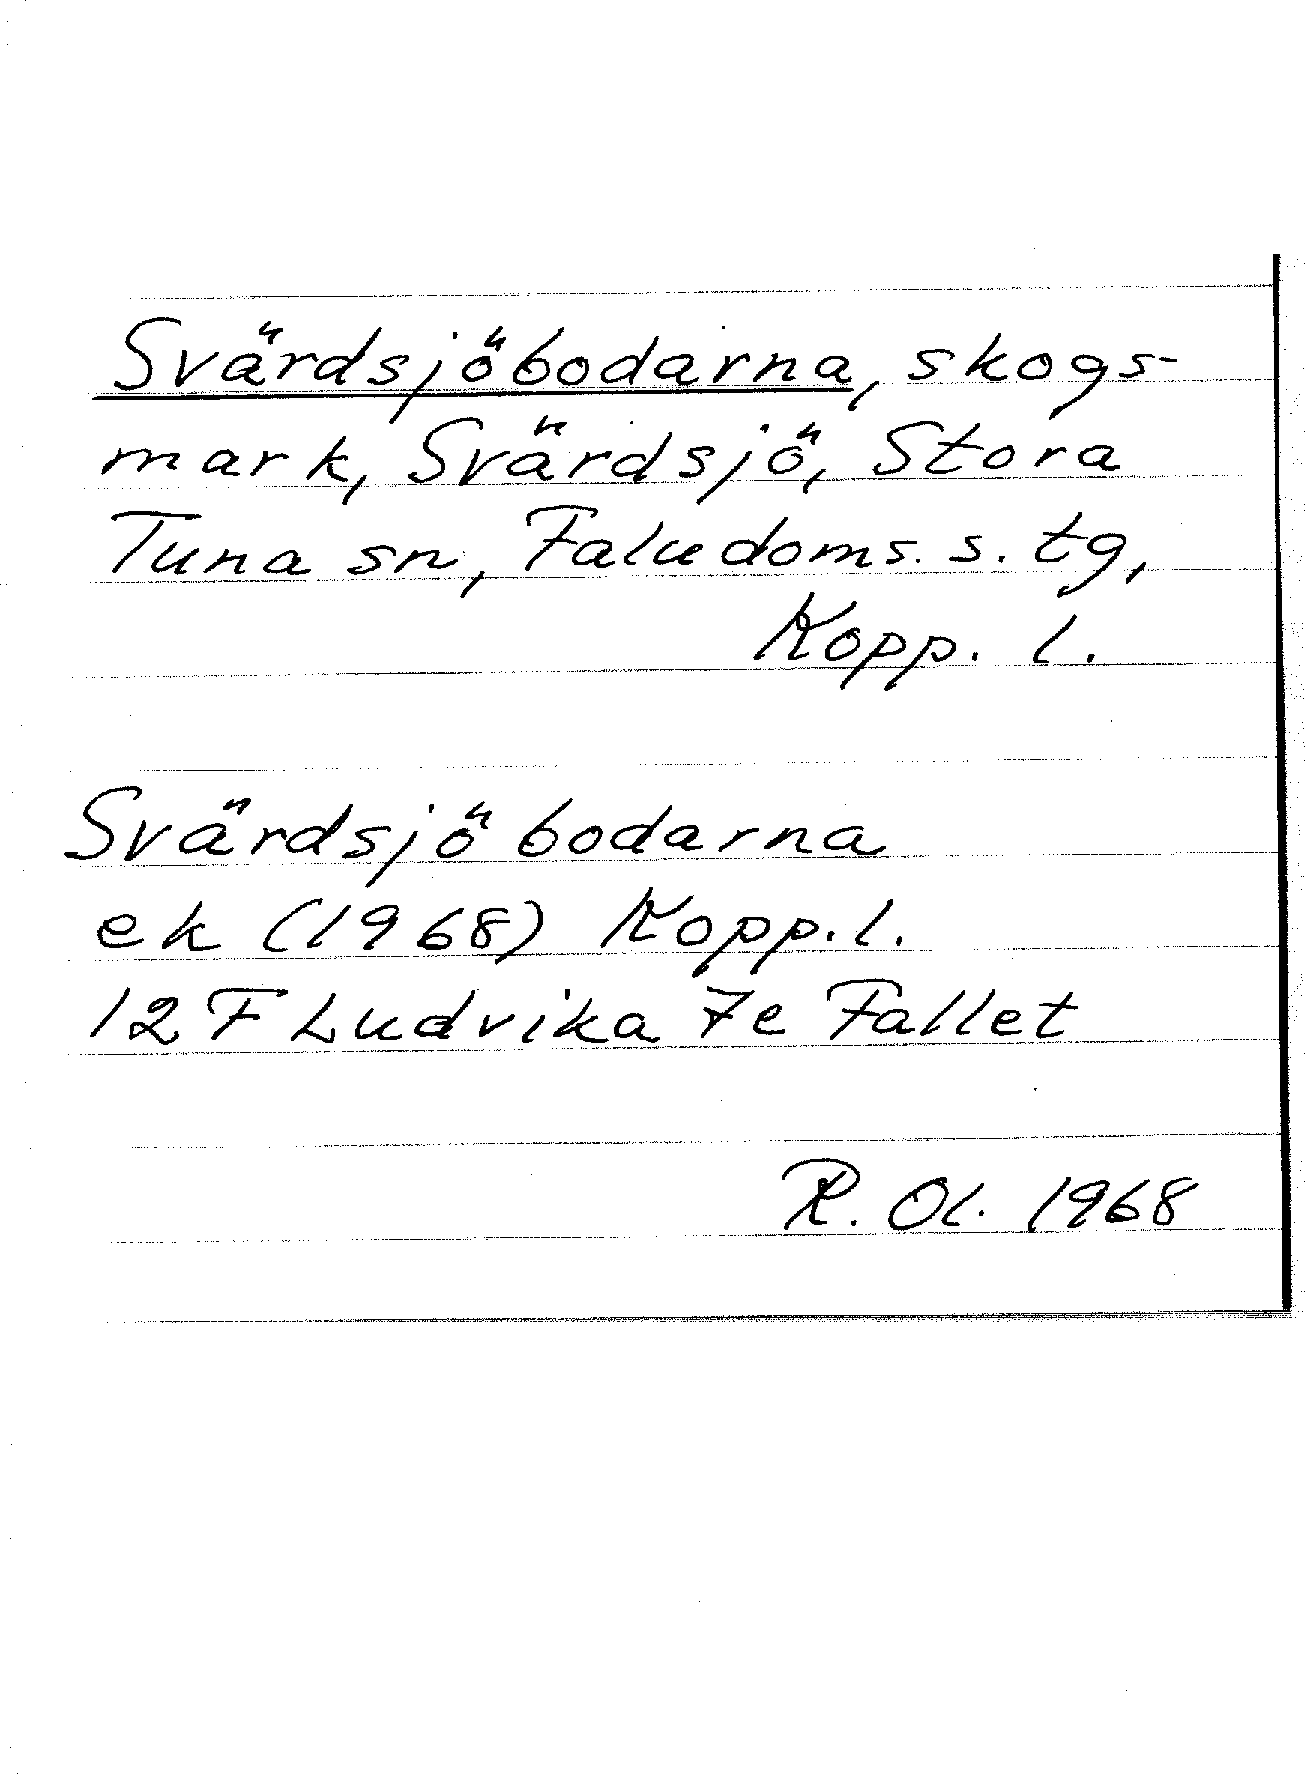 Svärdsjöbodarna, skogs-
mark, Svärdsjö, Stora
Tuna sn, Faludoms. s. tg,
Kopp. l.
Svärdsjöbodarna
ek (1968) Kopp. l.
12 F Ludvika 7e Fallet
R. Ol. 1968